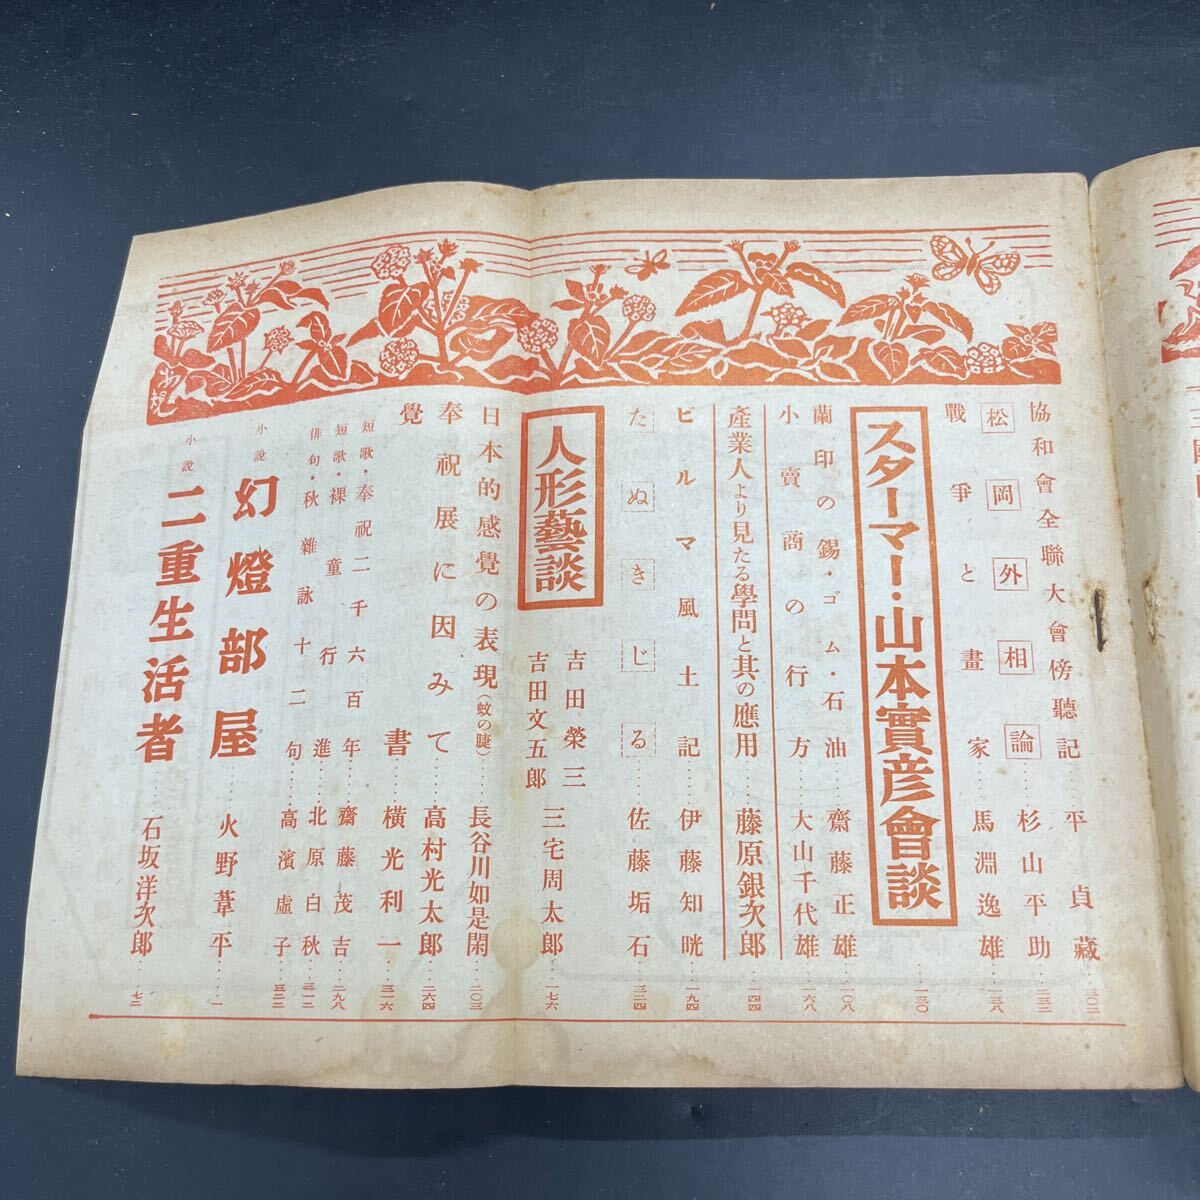 協和會全聯大會傍聽記……平貞藏……三〇二
松岡外相論……杉山平助……二三二
戰爭と畫家……馬淵逸雄……一三八
スターマー・山本實彦會談……一三〇
蘭印の錫・ゴム・石油……齋藤正雄……一〇八
小賣商の行方……大山千代雄……一六八
產業人より見たる學問と其の應用……藤原銀次郎……一四四
ビルマ風土記……伊藤知晄……一九四
たぬきじる……佐藤垢石……三二四
人形藝談
吉田榮三
吉田文五郎
三宅周太郎……一七六
日本的感覺の表現(蚊の睫)……長谷川如是閑……二〇三
奉祝展に因みて……高村光太郎……二六四
覺書……橫光利一……三一六
短歌・奉祝二千六百年……齋藤茂吉……二九八
短歌・裸童行進……北原白秋……三一二
俳句・秋雜詠十二句……高濱虛子……三二二
小說 幻燈部屋……火野葦平……一
小說 二重生活者……石坂洋次郎……七二